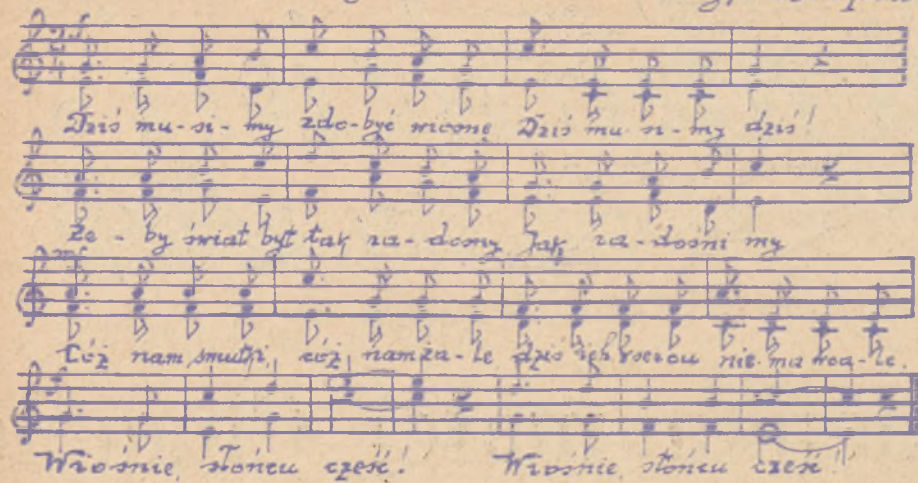 Dziś mu-si-my zdo-być wiosnę Dziś mu-si-my dziś!
Że-by świat był tak ra-dosny Jak ra-dośni my
Cóż nam smutki, cóż nam ża-le dziś ich w sercu nie ma wca-le.
Wiośnie, słońcu cześć! Wiośnie, słońcu cześć!